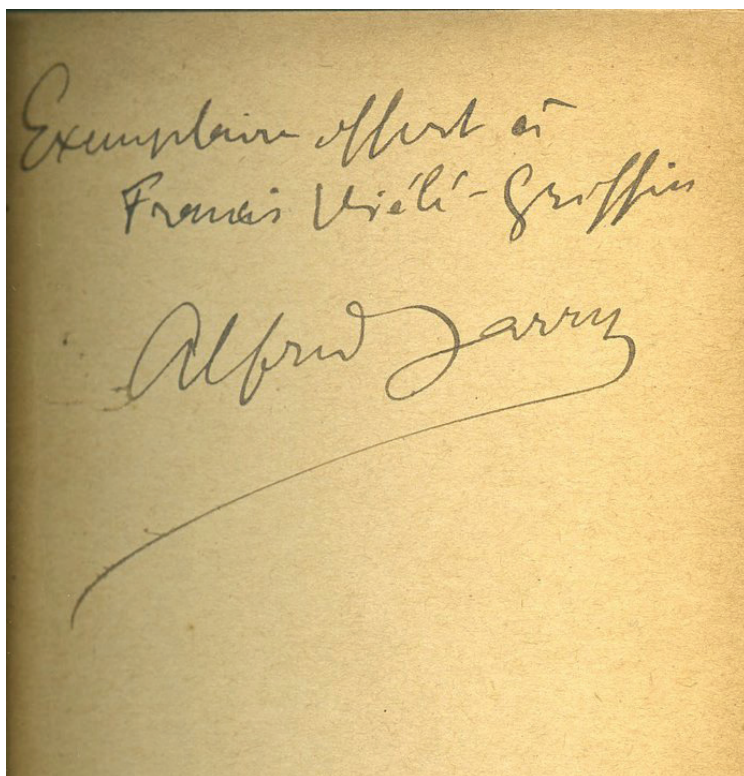 Exemplaire offert à
Francis Vielé-Griffin
Alfred Jarry